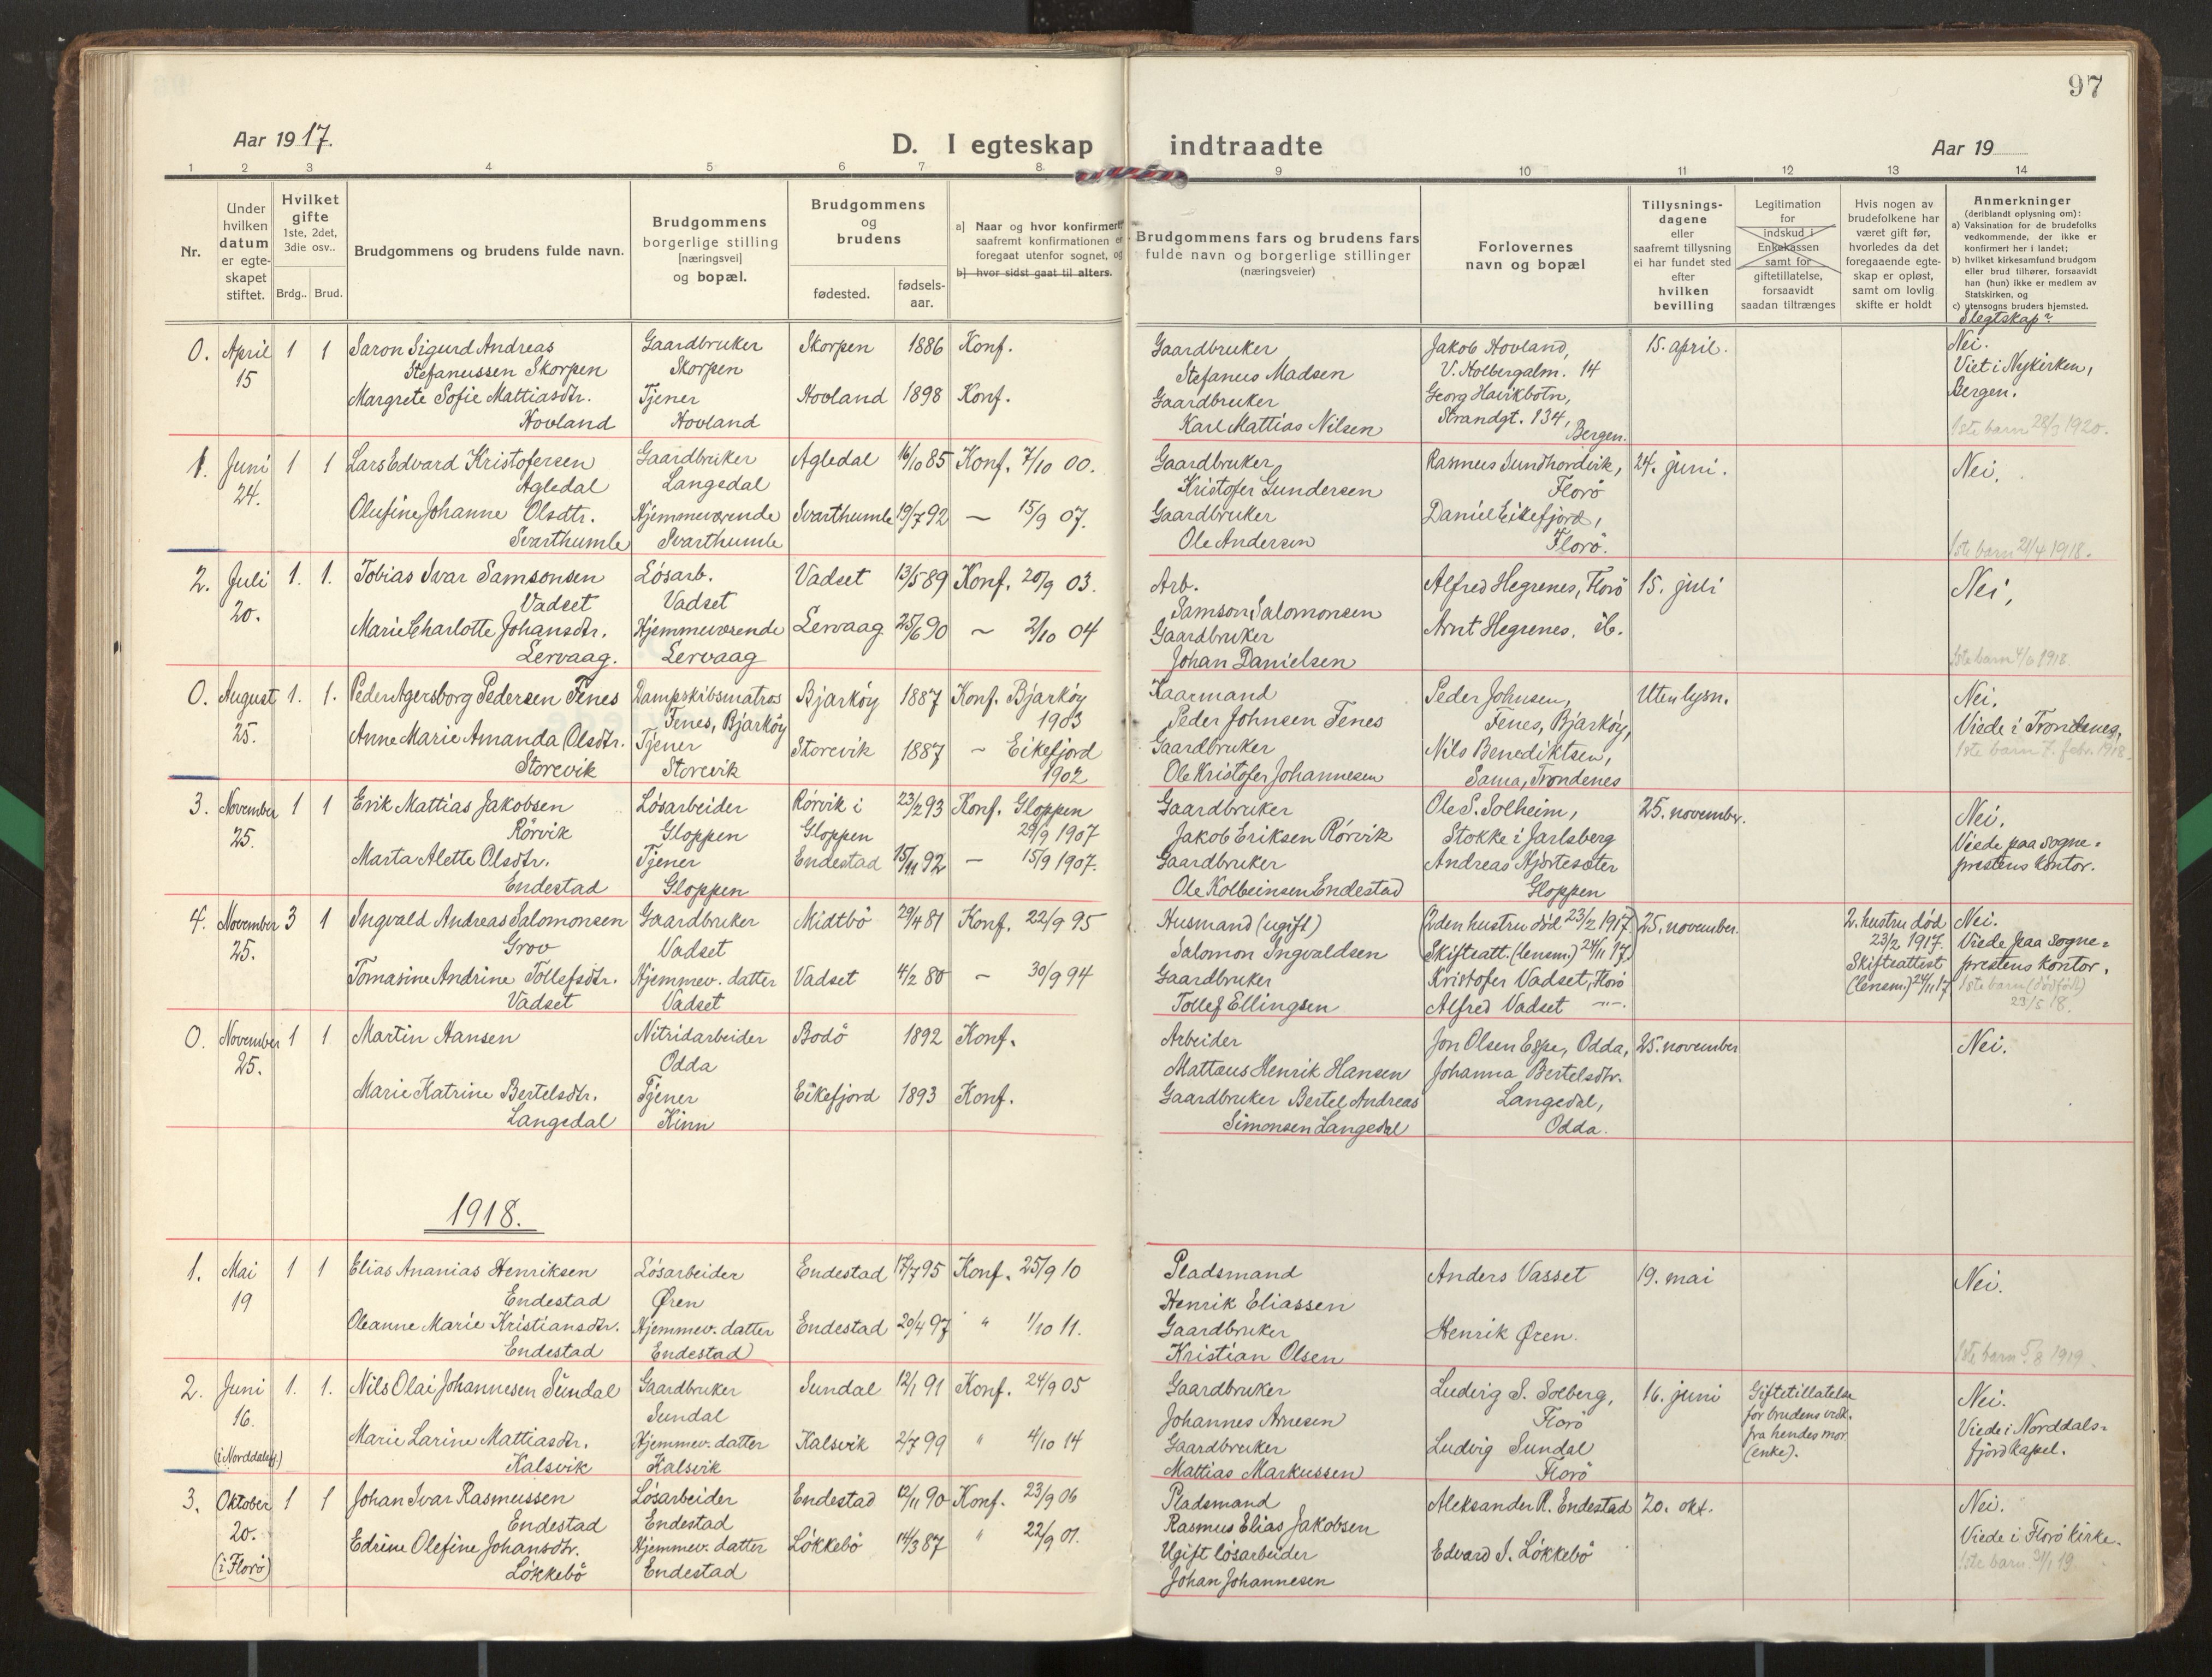 97
Aar 1917.
D. I egteskap indtraadte
Aar 19
1 2 3 4 5 6 7 8. 9 10 11 12 13 14
Nr.
Under
hvilken
datum
er egte-
skapet
stiftet.
Hvilket
gifte
1ste, 2det,
3die osv..
Brdg.. Brud.
Brudgommens og brudens fulde navn.
Brudgommens
borgerlige stilling
[næringsvei]
og bopæl.
Brudgommens
og
brudens
fødested.
fødsels-
aar.
a] Naar og hvor konfirmert
saafremt konfirmationen er
foregaat utenfor sognet, og
b] hvor sidst gaat til alters.
Brudgommens fars og brudens fars
fulde navn og borgerlige stillinger
(næringsveier)
Forlovernes
navn og bopæl
Tillysnings-
dagene
eller
saafremt tillysning
ei har fundet sted
efter
hvilken
bevilling
Legitimation
for
indskud i
Enkekassen
samt for
giftetillatelse,
forsaavidt
saadan tiltrænges
Hvis nogen av
brudefolkene har
været gift før,
hvorledes da det
foregaaende egte-
skap er opløst,
samt om lovlig
skifte er holdt
Anmerkninger
(deriblandt oplysning om):
a) Vaksination for de brudefolks
vedkommende, der ikke er
konfirmert her i landet;
b) hvilket kirkesamfund brudgom
eller brud tilhører, forsaavidt
han (hun) ikke er medlem av
Statskirken, og
c) utensogns bruders hjemsted.
Slegtskap?
0. April 1 1 Saron Sigurd Andreas Gaardbruker Skorpen 1886 Konf. Gaardbruker Jakob Hovland, 15. april. Nei.
15 Stefanussen Skorpen Skorpen Stefanus Madsen V. Holbergalm. 14 Viet i Nykirken,
Margrete Sofie Mattiasdtr. Tjener Hovland 1898 Konf. Gaardbruker Georg Havikbotn, Bergen.
Hovland Hovland Karl Mattias Nilsen Strandgt. 134, Bergen. 1ste barn 28/3 1920.
1. Juni 1 1 Lars Edvard Kristofersen Gaardbruker Agledal 16/10 85 Konf. 7/10 00. Gaardbruker Rasmus Sundhordvik, 24. juni. Nei.
24. Agledal Langedal Kristofer Gundersen Florö
Olufine Johanne Olsdtr. Hjemmeværende Svarthumle 19/7 92 — 15/9 07. Gaardbruker Daniel Eikefjord,
Svarthumle Svarthumle Ole Andersen Florö. 1ste barn 21/4 1918.
2. Juli 1. 1. Tobias Ivar Samsonsen Lösarb. Vadset 13/5 89 Konf. 20/9 03. Arb. Alfred Hegrenes, Florö 15. juli Nei,
20. Vadset Vadset Samson Salomonsen
Marie Charlotte Johansdtr. Hjemmeværende Lervaag 25/6 90 ~ 2/10 04 Gaardbruker Arnt Hegrenes, ib.
Lervaag. Lervaag Johan Danielsen 1ste barn 4/6 1918.
0. August 1. 1. Peder Agersborg Pedersen Fenes Dampskibsmatros Bjarköy 1887 Konf. Bjarköy Haarmand Peder Johnsen, Uten lysn. Nei.
25. Fenes, Bjarköy 1903 Peder Johnsen Fenes Fenes, Bjarköy, Viede i Trondenes,
Anne Marie Amanda Olsdtr. Tjener Storevik 1887 ~ Eikefjord Gaardbruker Nils Benediktsen, 1ste barn 7. febr. 1918.
Storevik Storevik 1902 Ole Kristofer Johannesen Sama, Trondenes
3. November 1 1 Erik Mattias Jakobsen Lösarbeider Rörvik i 23/2 93 Konf. Gloppen Gaardbruker Ole S. Solheim, 25. november. Nei.
25. Rörvik Gloppen Gloppen 29/9 1907 Jakob Eriksen Rörvik Stokke i Jarlsberg Viede paa sogne-
Marta Alette Olsdtr. Tjener Endestad 15/11 92 — 15/9 1907. Gaardbruker Andreas Hjortesæter prestens kontor.
Endestad Gloppen Ole Kolbeinsen Endestad Gloppen
4. November 3 1 Ingvald Andreas Salomonsen Gaardbruker Midtbö 29/4 81 Konf. 22/9 95 Husmand (ugift) (2den hustru död 23/2 1917. 25. november. 2. hustru död Nei.
25. Grov Vadset Salomon Ingvaldsen Skifteatt. (lensm.) 24/11 17.) 23/2 1917. Viede paa sogne-
Tomasine Andrine Tollefsdtr. Hjemmev. datter Vadset 4/2 80 — 30/9 94 Gaardbruker Kristofer Vadset, Florö Skifteattest prestens kontor.
Vadset Vadset Tollef Ellingsen Alfred Vadset —"—. (lensm.) 24/11 17 1ste barn (dödfödt)
23/5 18.
0. November 1 1 Martin Hansen Nitridarbeider Bodö 1892 Konf. Arbeider Jon Olsen Espe, Odda, 25. november Nei.
25. Odda Mattæus Henrik Hansen Johanna Bertelsdtr.
Marie Katrine Bertelsdtr. Tjener Eikefjord 1893 Konf. Gaardbruker Bertel Andreas Langedal,
Langedal Kinn Simonsen Langedal Odda.
1918.
1. Mai 1 1 Elias Ananias Henriksen Lösarbeider Endestad 17/7 95 Konf. 25/9 10 Pladsmand Anders Vasset 19. mai Nei.
19 Endestad Øren Henrik Eliassen
Oleanne Marie Kristiansdtr. Hjemmev. datter Endestad 20/4 97 " 1/10 11. Gaardbruker Henrik Øren.
Endestad Endestad Kristian Olsen 1ste barn 5/8 1919.
2. Juni 1. 1. Nils Olai Johannesen Sundal Gaardbruker Sundal 12/1 91 Konf. 24/9 05 Gaardbruker Ludvig S. Solberg, 16. juni Giftetillatelse Nei.
16. Sundal Johannes Arnesen Florö for brudens vedk. Viede i Norddals-
Marie Larine Mattiasdtr. Hjemmev. datter Kalsvik 2/7 99 " 4/10 14 Gaardbruker Ludvig Sundal fra hendes mor fjord kapel.
(i Norddalsfj.) Kalsvik Kalsvik Mattias Markussen Florö (enke).
3. Oktober 1 1 Johan Ivar Rasmussen Lösarbeider Endestad 12/11 90 Konf. 23/9 06 Pladsmand Aleksander R. Endestad 20. okt. Nei.
20. Endestad Endestad Rasmus Elias Jakobsen Viede i Florö kirke.
(i Florö) Edrine Olefine Johansdtr. Hjemmev. datter Lökkebö 14/3 87 " 22/9 01. Ugift lösarbeider Edvard J. Lökkebö 1ste barn 31/1 19
Lökkebö Endestad Johan Johannesen